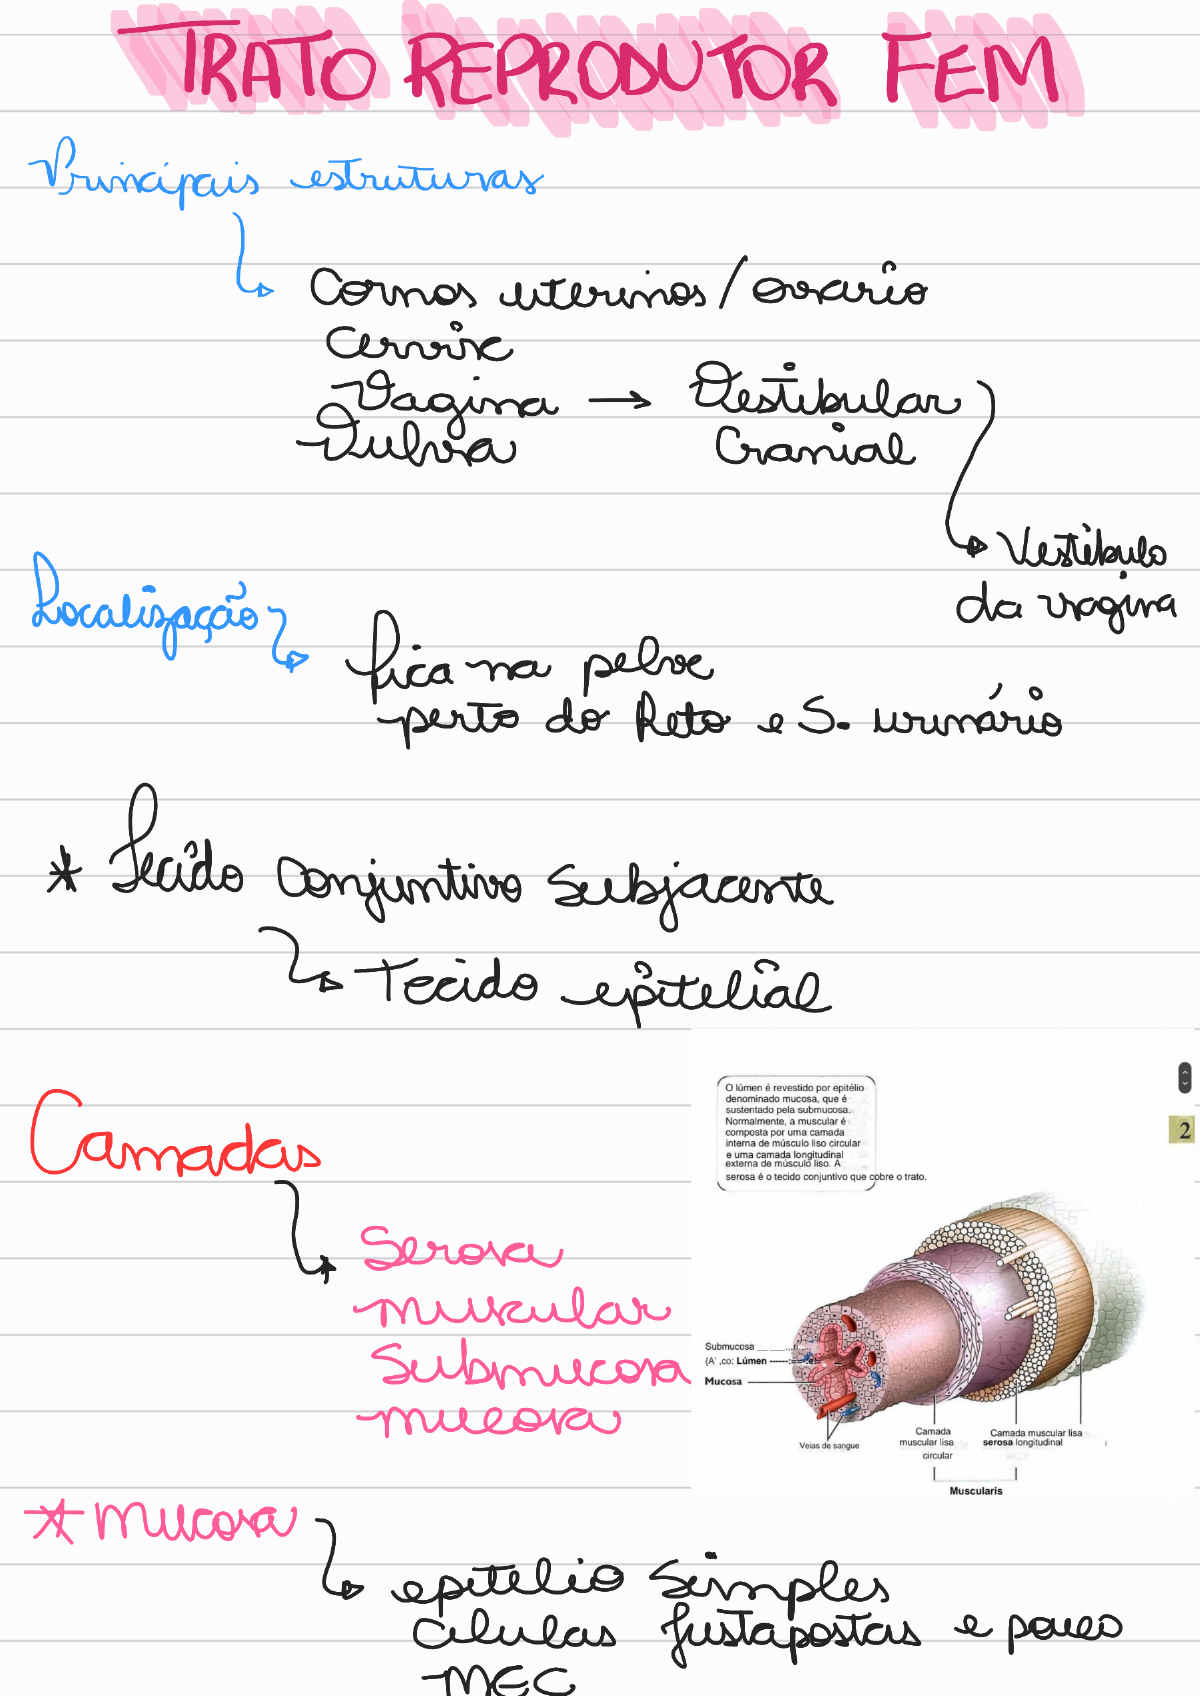 TRATO REPRODUTOR FEM
Principais estruturas
Cornos uterinos / ovário
Cervix
Vagina → Vestibular
Vulva Cranial
Vestíbulo
da vagina
Localização
fica na pelve
perto do Reto e S. urinário
* Tecido Conjuntivo Subjacente
Tecido epitelial
O lúmen é revestido por epitélio
denominado mucosa, que é
sustentado pela submucosa.
Normalmente, a muscular é
composta por uma camada
interna de músculo liso circular
e uma camada longitudinal
externa de músculo liso. A
serosa é o tecido conjuntivo que cobre o trato.
2
Camadas
Serosa
muscular
Submucosa
mucosa
Submosa
(A' ,co: Lúmen
Mucosa
Veias de sangue
Camada
muscular lisa
circular
Camada muscular lisa
serosa longitudinal
Muscularis
* mucosa
epitelio Simples
células Justapostas e pouco
MEC